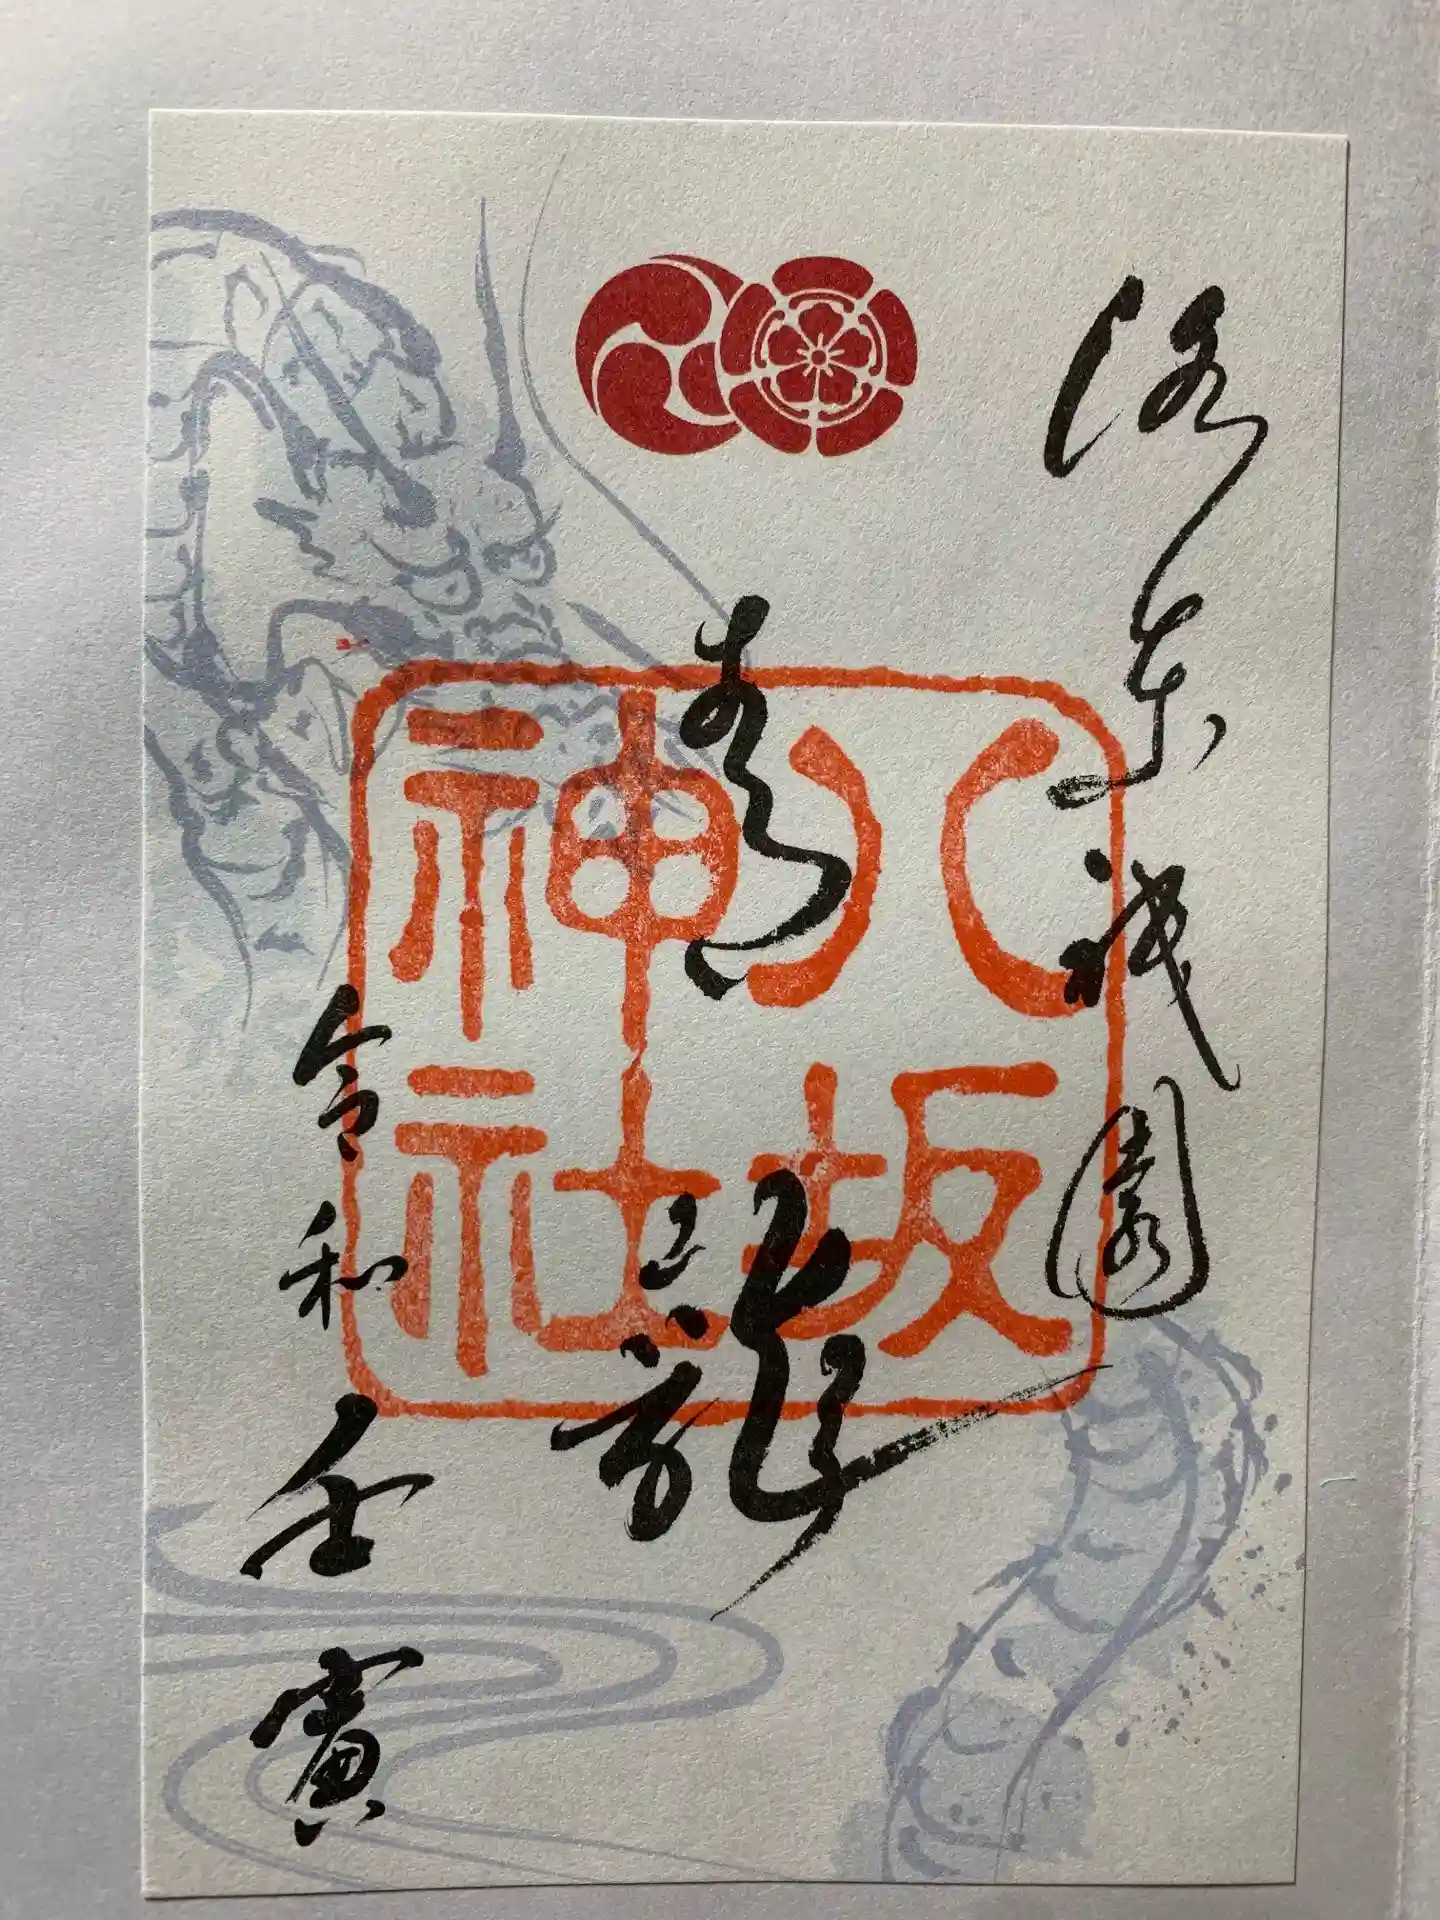 洛東祇園
青龍
令和壬寅
八坂
神社